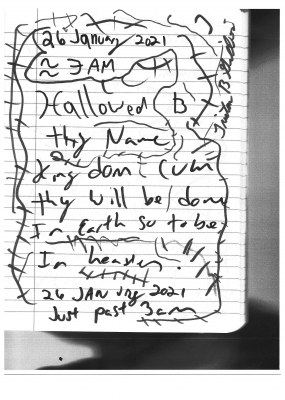 26 January 2021
≈ 3 AM
Hallowed B
thy Name
King dom Cum
thy will be dom
In Earth so to be
In heaven.
26 JANury 2021
Just past 3am